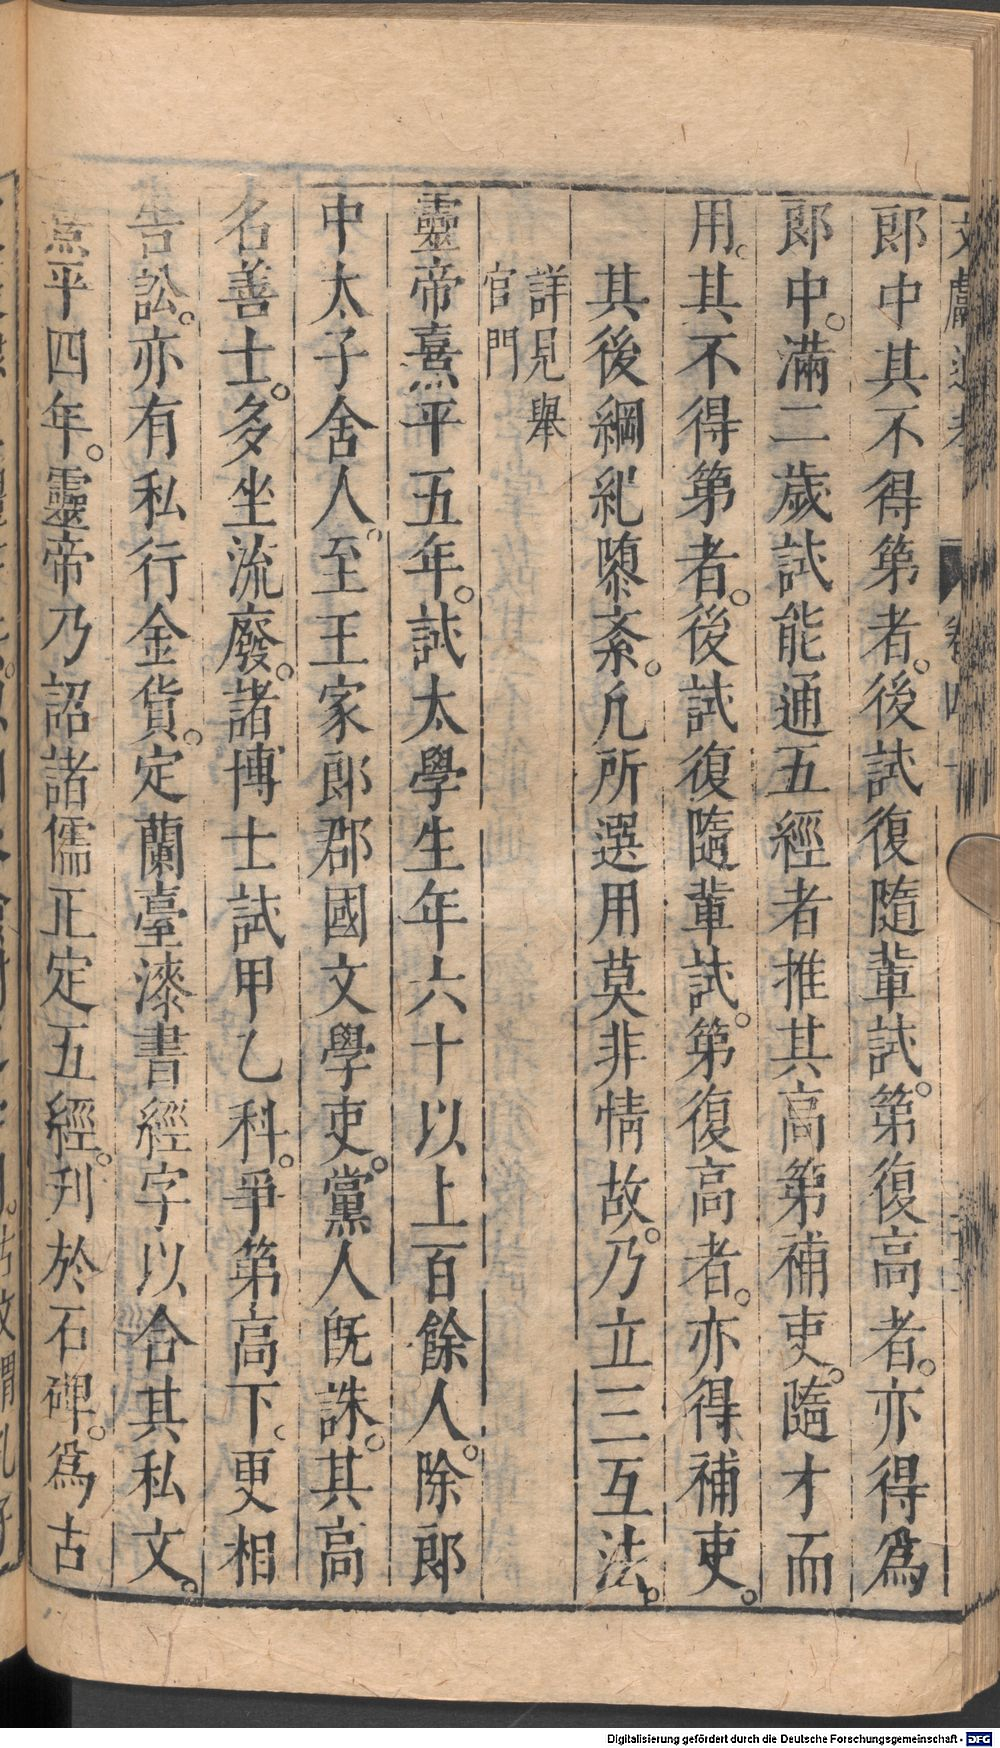 郎中其不得第者。後試復隨輩試。第復高者。亦得爲
郎中。滿二歲試能通五經者推其高第補吏。隨才而
用。其不得第者。後試復隨輩試。第復高者。亦得補吏。
其後綱紀隳紊。凡所選用莫非情故。乃立三互法。
詳見舉
官門
靈帝熹平五年。試太學生年六十以上百餘人。除郎
中太子舍人。至王家郎郡國文學吏。黨人既誅。其高
名善士。多坐流廢。諸博士試甲乙科。爭第高下。更相
告訟。亦有私行金貨。定蘭臺漆書經字以合其私文。
熹平四年。靈帝乃詔諸儒正定五經。刋於石碑。爲古
Digitalisierung gefördert durch die Deutsche Forschungsgemeinschaft - DFG